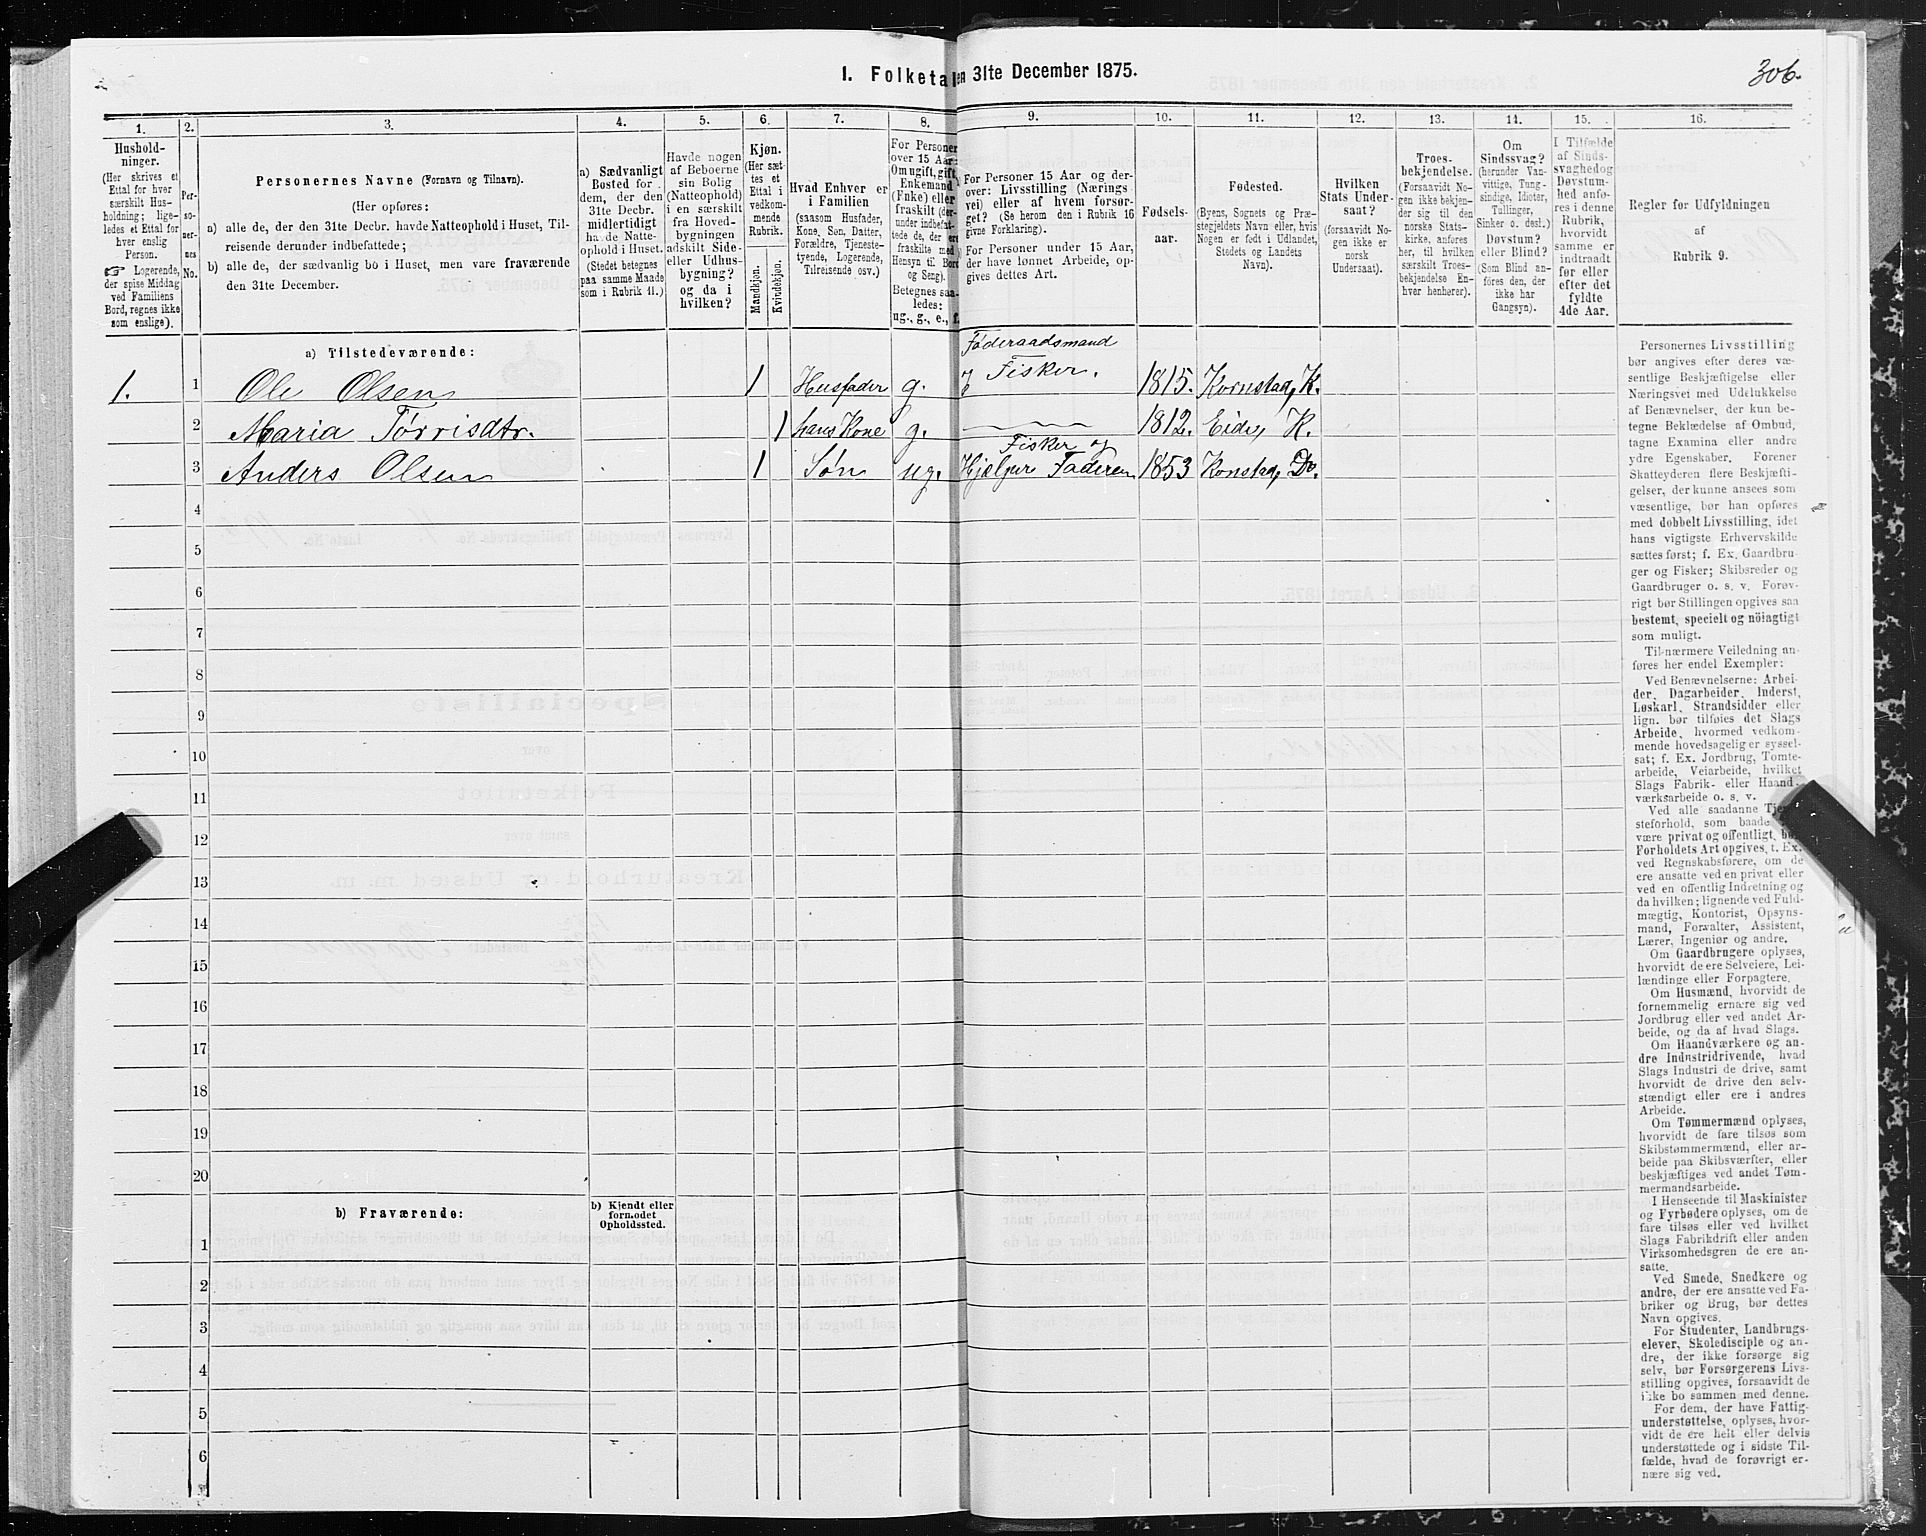 1. Folketal en 31te December 1875.
306.
1.
2.
3.
4.
5.
6.
7.
8.
9.
10.
11.
12.
13.
14.
15.
16.
Hushold-
ninger.
(Her skrives et
Ettal for hver
særskilt Hus-
holdning; lige-
ledes et Ettal for
hver enslig
Person.
☞ Logerende,
der spise Middag
ved Familiens
Bord, regnes ikke
som enslige).
Per-
so-
ner-
nes
No.
Personernes Navne (Fornavn og Tilnavn).
(Her opføres:
a) alle de, der den 31te Decbr. havde Natteophold i Huset, Til-
reisende derunder indbefattede;
b) alle de, der sædvanlig bo i Huset, men vare fraværende
den 31te December.
a) Sædvanligt
Bosted for
dem, der den
31te Decbr.
midlertidigt
havde Natte-
ophold i Huset.
(Stedet betegnes
paa samme Maade
som i Rubrik 11.)
Havde nogen
af Beboerne
sin Bolig
(Natteophold)
i en særskilt
fra Hoved-
bygningen
adskilt Side-
eller Udhus-
bygning?
og da i
hvilken?
Kjøn.
(Her sæt-
tes et
Ettal i
vedkom-
mende
Rubrik.
Mandkjøn.
Kvindekjøn.
Hvad Enhver er
i Familien
(saasom Husfader,
Kone, Søn, Datter,
Forældre, Tjeneste-
tyende, Logerende,
Tilreisende osv.)
For Personer
over 15 Aar:
Om ugift, gift,
Enkemand
(Enke) eller
fraskilt (der-
under indbefat-
tede de, der ere
fraskilte med
Hensyn til Bord
og Seng).
Betegnes saa-
ledes:
ug., g., e., f.
For Personer 15 Aar og der-
over: Livsstilling (Nærings
vei) eller af hvem forsør-
get? (Se herom den i Rubrik 16
givne Forklaring).
For Personer under 15 Aar,
der have lønnet Arbeide, op-
gives dettes Art.
Fødsels-
aar.
Fødested.
(Byens, Sognets og Præ-
stegjeldets Navn eller, hvis
Nogen er født i Udlandet,
Stedets og Landets
Navn).
Hvilken
Stats Under-
saat?
(forsaavidt No-
gen ikke er
norsk
Undersaat).
Troes-
bekjendelse.
(Forsaavidt No-
gen ikke bekjen-
der sig til den
norske Stats-
kirke, anføres
her, til hvilken
særskilt Troes-
bekjendelse En-
hver henhører).
Om
Sindssvag?
(herunder Van-
vittige, Tung-
sindige, Idioter,
Tullinger,
Sinker o. desl.)
Døvstum?
eller Blind?
(Som Blind an-
føres den, der
ikke har
Gangsyn).
I Tilfælde
af Sinds-
svaghed og
Døvstum-
hed anfø-
res i denne
Rubrik,
hvorvidt
samme er
indtraadt
før eller
efter det
fyldte
4de Aar.
Regler for Udfyldningen
af
Rubrik 9.
a) Tilstedeværende:
Føderaadsmand
1. 1 Ole Olsen 1 Husfader g. Fisker. 1815. Kornstad, K.
2 Maria Tørrisdtr. 1 hans Kone g. 1812. Eide, K.
Fisker og
3 Anders Olsen 1 Søn ug. Hjælper Faderen 1853 Konstad, Do.
4
5
6
7
8
9
10
11
12
13
14
15
16
17
18
19
20
b) Fraværende:
b) Kjendt eller
formodet
Opholdssted.
1
2
3
4
5
6
Personernes Livsstilling
bør angives efter deres væ-
sentlige Beskjæftigelse eller
Næringsvei med Udelukkelse
af Benævnelser, der kun be-
tegne Beklædelse af Ombud,
tagne Examina eller andre
ydre Egenskaber. Forener
Skatteyderen flere Beskjæfti-
gelser, der kunne ansees som
væsentlige, bør han opføres
med dobbelt Livsstilling, idet
hans vigtigste Erhvervskilde
sættes først; f. Ex. Gaardbru-
ger og Fisker; Skibsreder og
Gaardbruger o. s. v. Forøv-
rigt bør Stillingen opgives saa
bestemt, specielt og nöiagtigt
som muligt.
Til nærmere Veiledning an-
føres her endel Exempler:
Ved Benævnelserne: Arbei-
der, Dagarbeider, Inderst,
Løskarl, Strandsidder eller
lign. bør tilføies det Slags
Arbeide, hvormed vedkom-
mende hovedsagelig er syssel-
sat; f. Ex. Jordbrug, Tomte-
arbeide, Veiarbeide, hvilket
Slags Fabrik- eller Haand-
værksarbeide o. s. v.
Ved alle saadanne Tjene-
steforhold, som baade
være privat og offentligt, bør
Forholdets Art opgives, t. Ex.
ved Regnskabsførere, om de
ere ansatte ved en privat eller
ved en offentlig Indretning og
da hvilken; lignende ved Fuld-
mægtig, Kontorist, Opsyns-
mand, Forvalter, Assistent,
Lærer, Ingeniør og andre.
Om Gaardbrugere oplyses,
hvorvidt de ere Selveiere, Lei-
lændinge eller Forpagtere.
Om Husmænd, hvorvidt de
fornemmelig ernære sig ved
Jordbrug eller ved andet Ar-
beide, og da af hvad Slags.
Om Haandværkere og an-
dre Industridrivende, hvad
Slags Industri de drive, samt
hvorvidt de drive den selv-
stændigt eller ere i andres
Arbeide.
Om Tømmermænd oplyses,
hvorvidt de fare tilsøs som
Skibstømmermænd, eller ar-
beide paa Skibsværfter, eller
beskjæftiges ved andet Tøm-
mermandsarbeide.
I Henseende til Maskinister
og Fyrbødere oplyses, om de
fare tilsøs eller ved hvilket
Slags Fabrikdrift eller anden
Virksomhedsgren de ere an-
satte.
Ved Smede, Snedkere og
andre, der ere ansatte ved Fa-
briker og Brug, bør dettes
Navn opgives.
For Studenter, Landbrugs-
elever, Skoledisciple og an-
dre, der ikke forsørge sig
selv, bør Forsørgerens Livs-
stilling opgives, forsaavidt de
ikke bo sammen med denne.
For dem, der have Fattig-
understøttelse, oplyses, hvor-
vidt de ere helt eller delvis
understøttede og i sidste Til-
fælde, hvad de forøvrigt er-
nære sig ved.